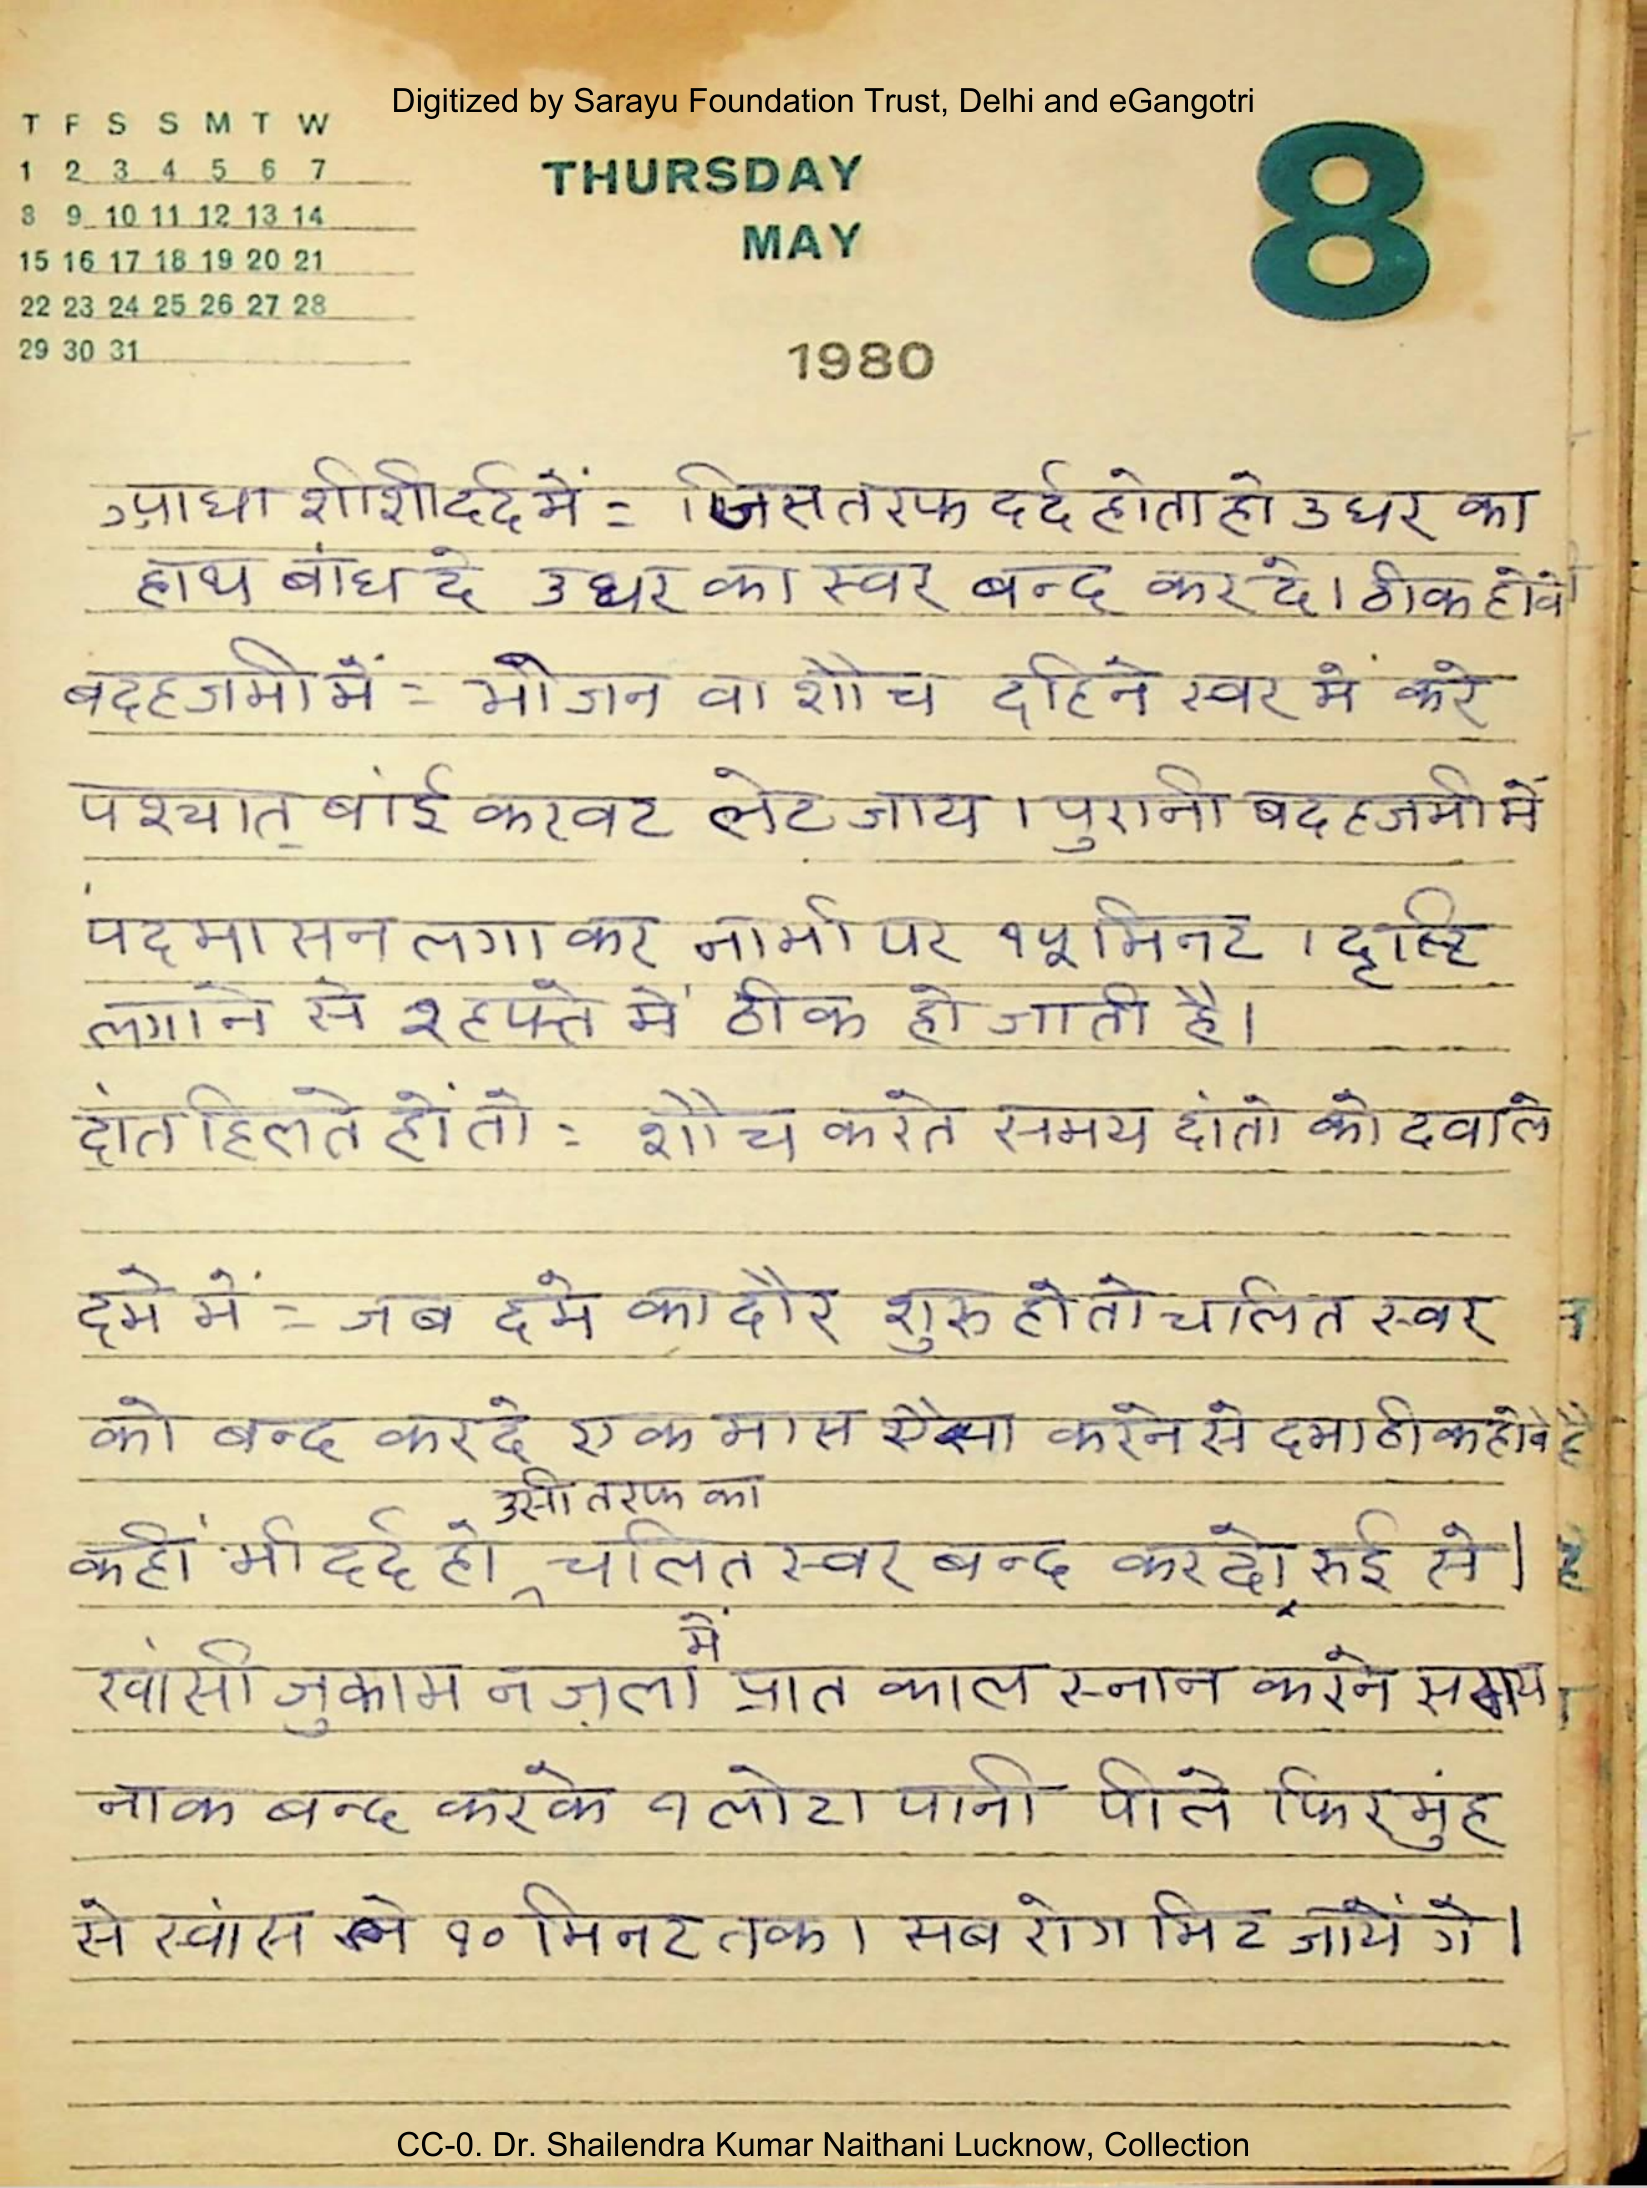 Digitized by Sarayu Foundation Trust, Delhi and eGangotri
T F S S M T W
1 2 3 4 5 6 7
8 9 10 11 12 13 14
15 16 17 18 19 20 21
22 23 24 25 26 27 28
29 30 31
THURSDAY
MAY
1980
8
आधा शीशी दर्द में = जिस तरफ दर्द होता हो उधर का
हाथ बांध दे उधर का स्वर बन्द कर दे। ठीक होवे
बदहजमी में = भोजन वा शौच दहिने स्वर में करे
पश्चात् बांई करवट लेट जाय । पुरानी बदहजमी में
पदमासन लगाकर नाभी पर १५ मिनट । दृष्टि
लगाने से १ हफ्ते में ठीक हो जाती है।
दांत हिलते हों तो = शौच करते समय दांतो को दवाले
दमे में = जब दमे का दौर शुरू हो तो चलित स्वर
को बन्द कर दे एक मास ऐसा करने से दमा ठीक होवे
उसी तरफ का
कहीं भी दर्द हो, चलित स्वर बन्द करदो रुई से।
में
खांसी जुकाम नज़ला प्रात काल स्नान करने समय
नाक बन्द करके १ लोटा पानी पीले फिर मुंह
से स्वांस ले १० मिनट तक। सब रोग मिट जायें गे।
CC-0. Dr. Shailendra Kumar Naithani Lucknow, Collection